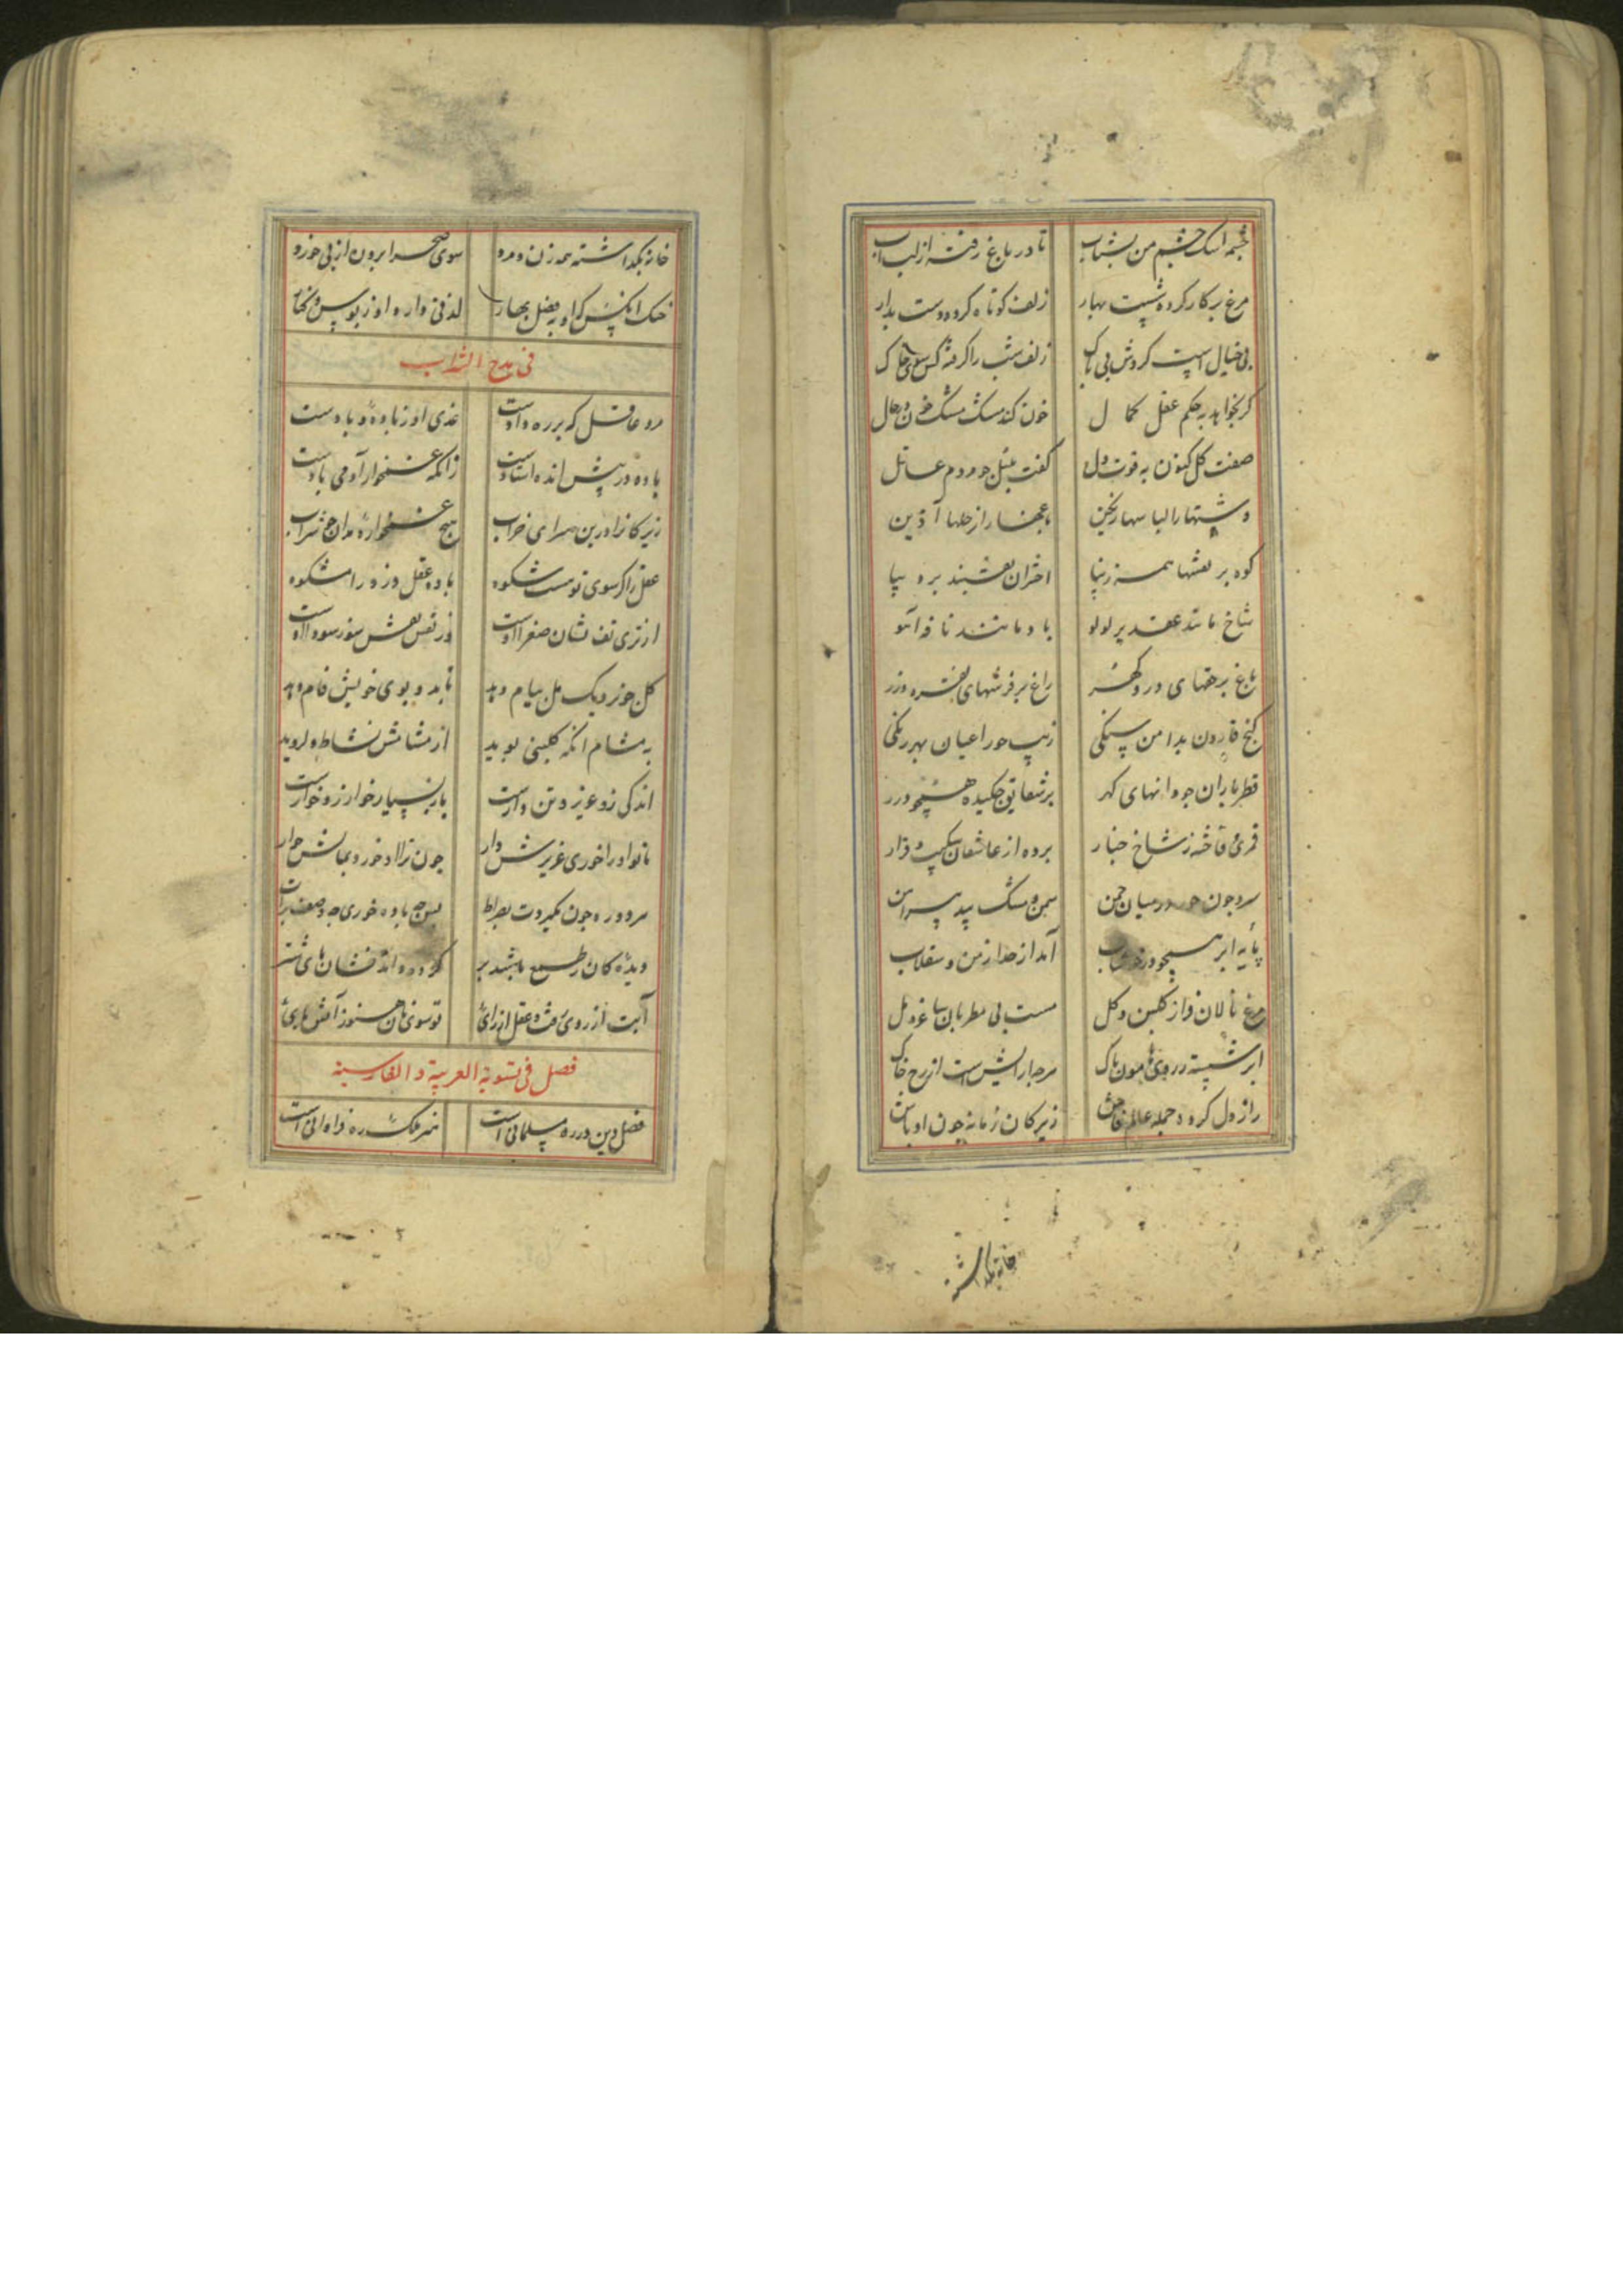 چشمه اشک چشم من بشتاب تا در باغ رفته از لب آب
مرغ بر کار کرده شست بهار زلف کوتاه کرده دست بدار
بی خیال است کردش بی باک زلف شب را گرفته کس چاک
کر بخواهد بحکم عقل کمال خون کند مشک مشک خون در حال
صفت کل کنون به قوت دل کفت بلبل جو مردم عاقل
دشتها را لباسها رنگین باغها را ز حلها آذین
کوه بر نقشها همه زیبا اختران نقشبند بر دیبا
شاخ مانند عقد پر لولو باد مانند نافه آهو
باغ پر حقهای در و کهر راغ پر فرشهای نقره و زر
کنج قارون بدامن سنکی زیب حورا عیان بهر رنکی
قطر باران جو دانهای کهر بر شقایق جکیده همجو درر
قمری و فاخته ز شاخ جنار برده از عاشقان شکیب و قرار
سرو جون حور در میان جمن سمن و مشک بید پیراهن
پایه ابر همجو در خوشاب آمد از حد ارمن و سقلاب
مرغ نالان فراز کلبن و کل مست بی مطربان ساغر و مل
ابر شسته ز روی هامون پاک هر جه آرایش است از رخ خاک
راز دل کرده جمله عالم فاش زیرکان زمانه جون اوباش
خانه بکذاشته
خانه بکذاشته همه زن و مرد سوی صحرا برون از پی خورد
خنک آنکس که او به فصل بهار لذتی دارد او ز بوس و کنار
فی مدح الشراب
مرد عاقل که بر ره دادست غذی او ز باده و بادست
باده در پیش انده استادست زانکه غمخوار آدمی بادست
زیرکانرا درین سرای خراب هیج غمخواره مدان جو شراب
عقل را کر سوی تو هست شکوه باده عقل دزد را مشکوه
از تری تف نشان صفرا اوست وز تفس نقش سوز سودا اوست
کل جو نزدیک مل پیام دهد تا بدو بوی خویش فام دهد
به مشام آنکه کلبنی بوید از مشامش نشاط دل روید
اندکی زو عزیز و تن دارست باز بسیار خوار زو خوارست
تا تو او را خوری عزیزش دار جون ترا او خورد بمانش خوار
مرد ره جون نکیردت بصراط پس جه باده خوری جه وصف برات
دیده کان ز طبع باشد بر کرده اند نشان های شتر
آبت از روی رفت و عقل از رای تو سوی نان هنوز آتش پای
فصل فی تسویة العربیة و الفارسیة
فضل دین در ره مسلمانی است هنر ملک ره فراوانی است